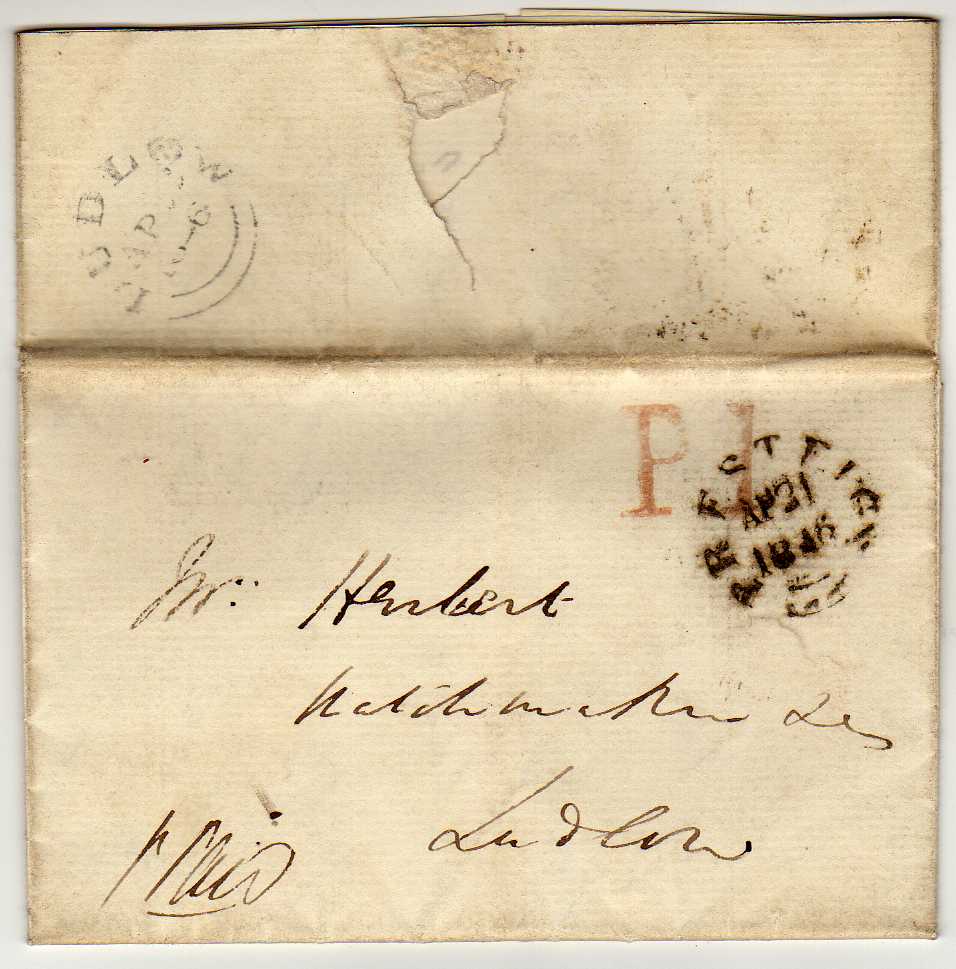 LUDLOW
AP
P1
AP 21
1846
Mr. Herbert
Watchmaker &c
Ludlow
Paid